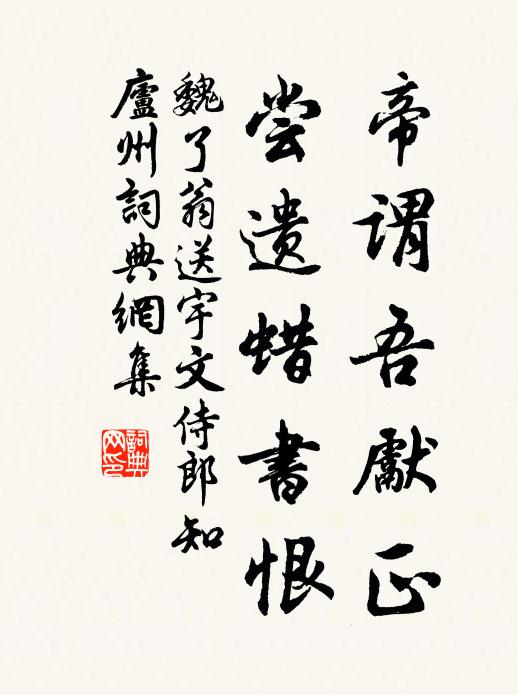 帝谓吾獻正
尝遗蜡書恨
魏了翁送宇文侍郎知
廬州詞典網集
詞典
网印